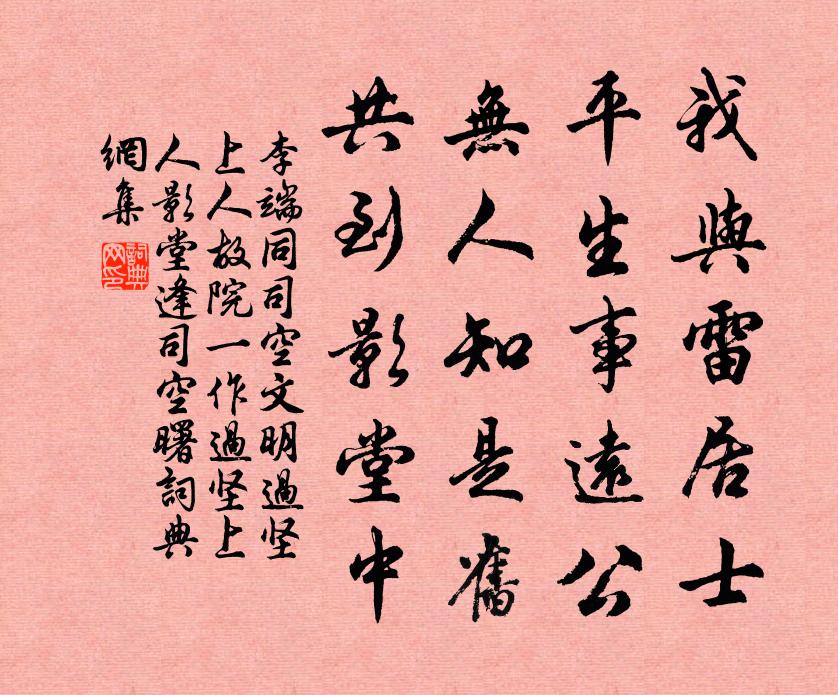 我與雷居士
平生事遠公
無人知是舊
共到影堂中
李端同司空文明過坚
上人故院一作過坚上
人影堂逢司空曙詞典
網集
詞典
网印